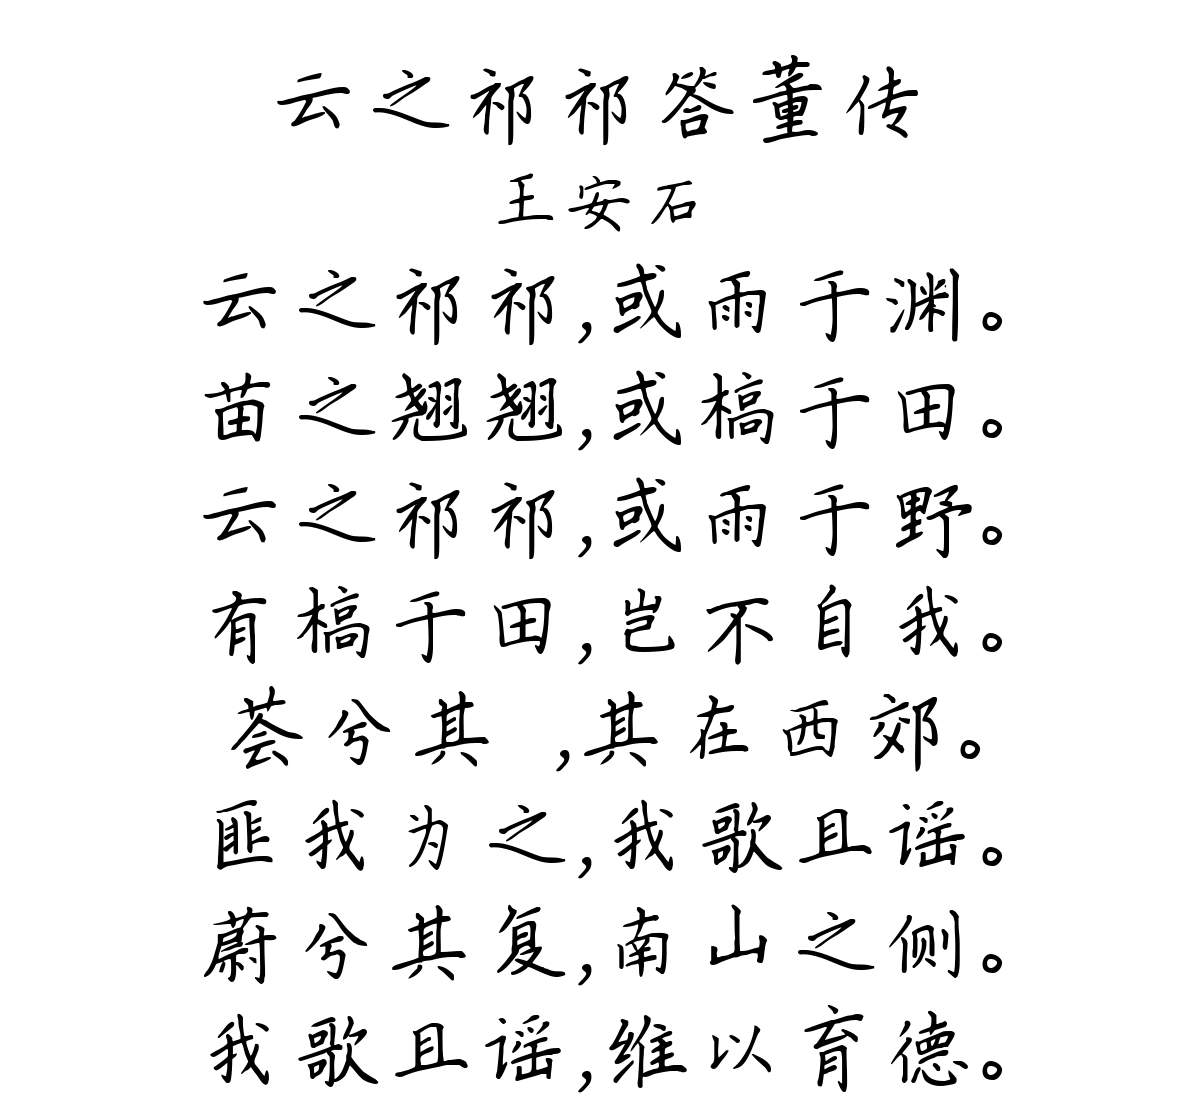 云之祁祁答董传
王安石
云之祁祁,或雨于渊。
苗之翘翘,或槁于田。
云之祁祁,或雨于野。
有槁于田,岂不自我。
荟兮其 ,其在西郊。
匪我为之,我歌且谣。
蔚兮其复,南山之侧。
我歌且谣,维以育德。